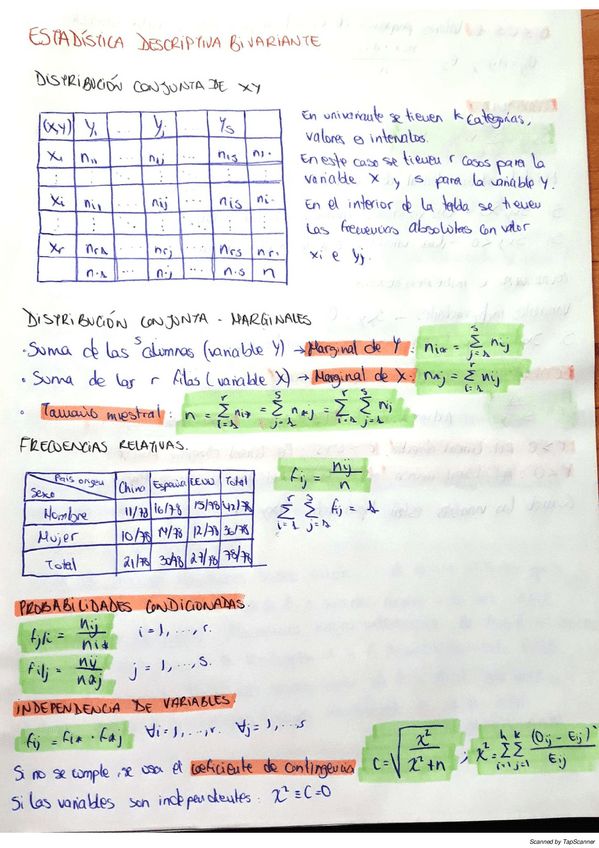 ESTADÍSTICA DESCRIPTIVA BIVARIANTE
DISTRIBUCIÓN CONJUNTA DE XY
(X,Y) y₁ ... yj ... ys
x₁ n₁₁ ... n1j ... n1s n1·
⋮ ⋮ ⋱ ⋮ ⋱ ⋮ ⋮
xi ni1 ... nij ... nis ni·
⋮ ⋮ ⋱ ⋮ ⋱ ⋮ ⋮
xr nr1 ... nrj ... nrs nr·
n·1 ... n·j ... n·s n
En univariante se tienen k categorías,
valores o intervalos.
En este caso se tienen r casos para la
variable X y s para la variable Y.
En el interior de la tabla se tienen
las frecuencias absolutas con valor
xi e yj.
DISTRIBUCIÓN CONJUNTA - MARGINALES
· Suma de las s columnas (variable Y) → Marginal de Y : ni* = Σ(j=1, s) nij
· Suma de las r filas (variable X) → Marginal de X : n*j = Σ(i=1, r) nij
· Tamaño muestral : n = Σ(i=1, r) ni* = Σ(j=1, s) n*j = Σ(i=1, r) Σ(j=1, s) nij
FRECUENCIAS RELATIVAS.
País origen
Sexo China España EEUU Total
Hombre 11/78 16/78 15/78 42/78
Mujer 10/78 14/78 12/78 36/78
Total 21/78 30/78 27/78 78/78
fij = nij/n
Σ(i=1, r) Σ(j=1, s) fij = 1
PROBABILIDADES CONDICIONADAS.
fj/i = nij/ni* i = 1, ..., r.
fi/j = nij/n*j j = 1, ..., s.
INDEPENDENCIA DE VARIABLES
fij = fi* · f*j ∀i = 1, ..., r. ∀j = 1, ..., s
Si no se cumple, se usa el coeficiente de contingencia C = √(χ²/(χ²+n)) ; χ² = Σ(i=1, h) Σ(j=1, k) (Oij - Eij)²/Eij
Si las variables son independientes : χ² = C = 0
Scanned by TapScanner